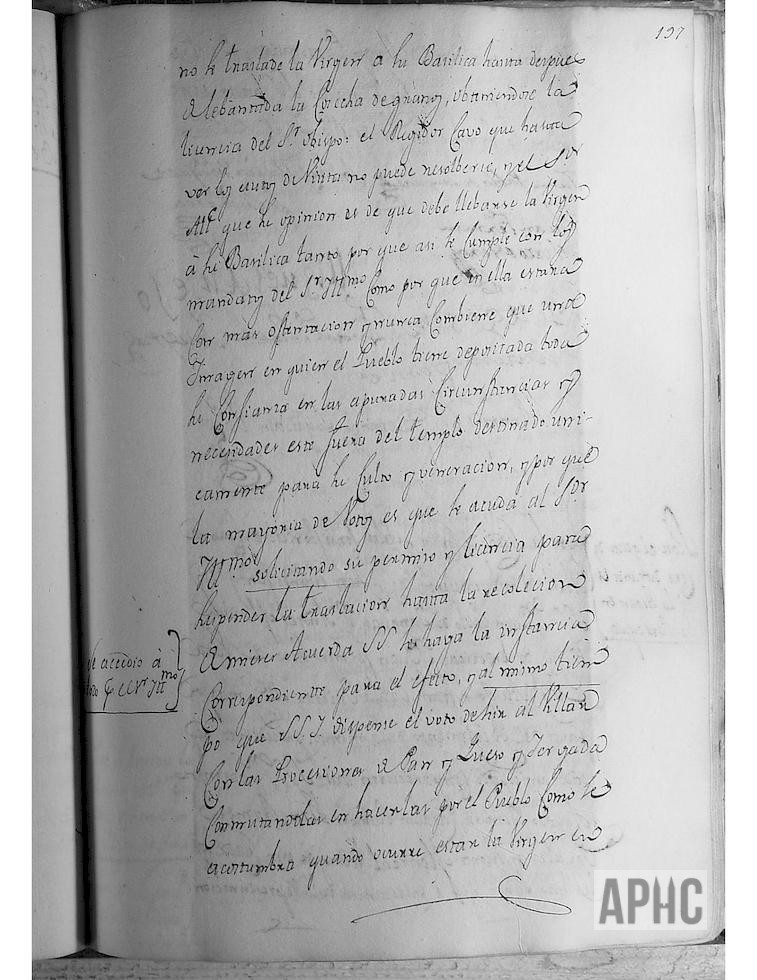 197
no se traslade la Virgen a su Basilica hasta despues
de lebantada la Cosecha de granos, obteniendose la
licencia del S.r obispo: el Regidor Cavo que hasta
ver los autos de Visita no puede resolberse, y el S.or
Alc.e que su opinion es de que debe llebarse la Virgen
à su Basilica tanto por que asi se Cumple con los
mandatos del S.r Ill.mo Como por que en ella estarà
Con mas ostentacion y nunca Combiene que una
Imagen en quien el Pueblo tiene depositada toda
su Confianza en las apuradas Circunstancias y
necesidades este fuera del templo destinado uni-
camente para su Culto y veneracion, y por que
la mayoria de Votos es que se acuda al S.or
Ill.mo solicitando su permiso y licencia para
suspender la traslacion hasta la recolecion
de mieses Acuerda SS se haga la instancia
Correspondiente para el efecto, y al mismo tiem
po que S.S.I. dispense el voto de hir al Villar
Con las Procesiones de Pan y Queso y Jergada
Conmutandolas en hacerlas por el Pueblo Como se
acostumbra quando ocurre estar la Virgen en
se accedio à
todo p.r el S.r Ill.mo
APHC